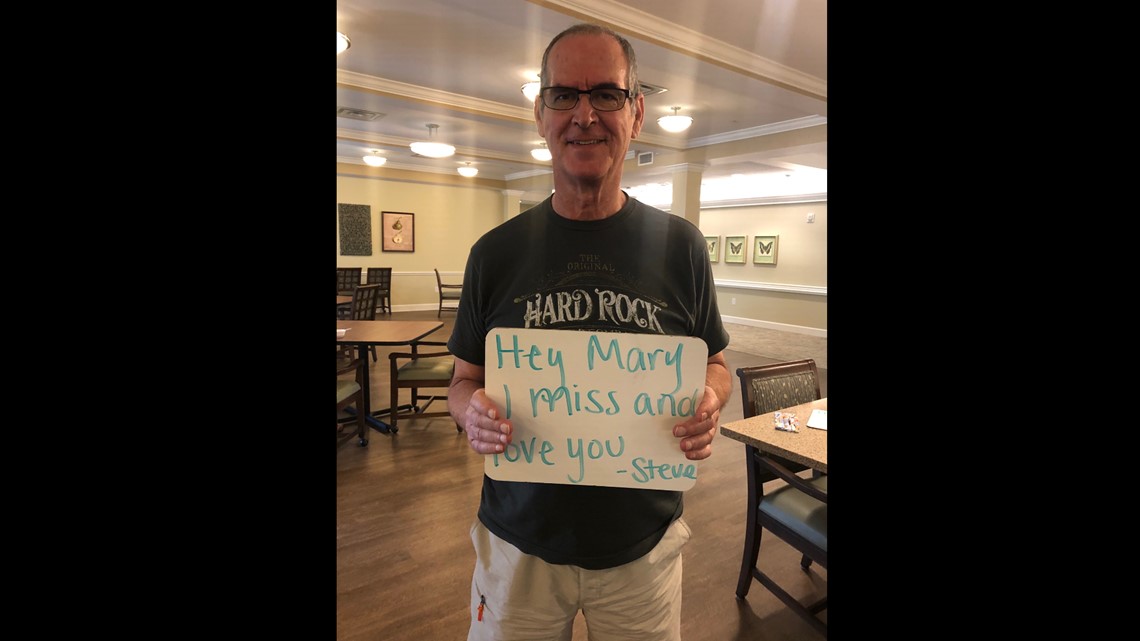 THE
ORIGINAL
HARD ROCK
Hey Mary
I miss and
love you
-Steve